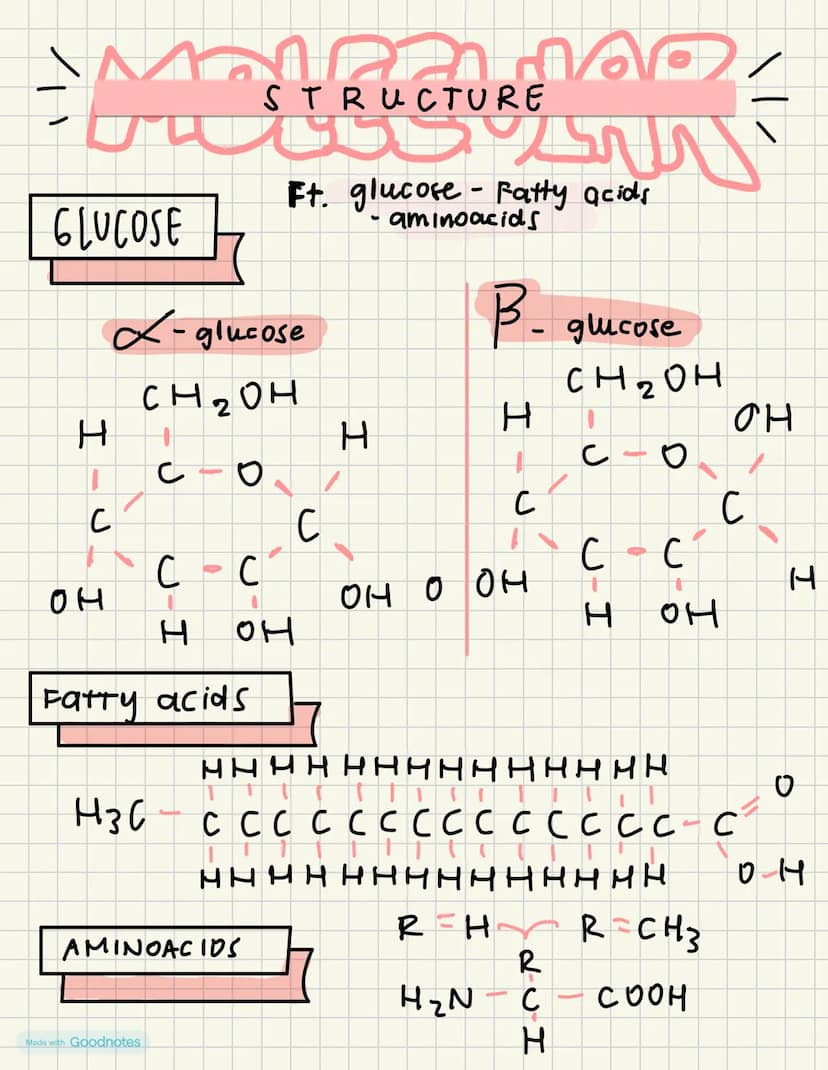 MOLECULAR
STRUCTURE
Ft. glucose - Fatty acids
- aminoacids
GLUCOSE
α - glucose
β - glucose
CH2OH
H
H
C - O
C
C
C - C
OH
OH
H
OH
O
CH2OH
H
OH
C - O
C
C
C - C
OH
H
H
OH
Fatty acids
H H H H H H H H H H H H H H
O
H3C - C C C C C C C C C C C C C C - C
H H H H H H H H H H H H H H
O-H
R = H
R = CH3
AMINOACIDS
R
H2N - C - COOH
H
Made with Goodnotes